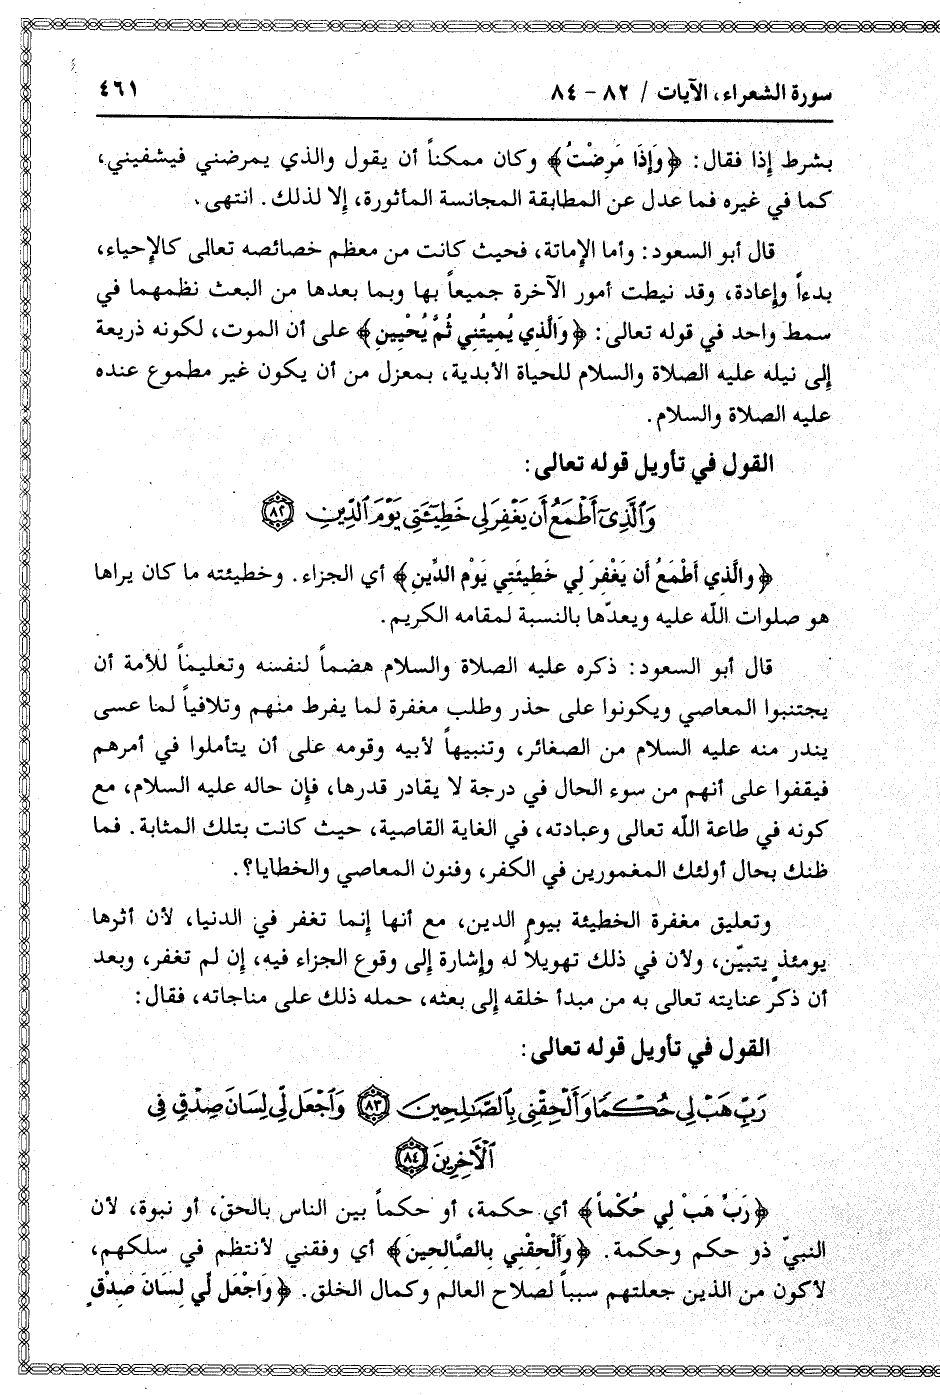 سورة الشعراء، الآيات / ٨٢ - ٨٤
٤٦١
بشرط إذا فقال: ﴿وَإِذَا مَرِضْتُ﴾ وكان ممكناً أن يقول والذي يمرضني فيشفيني،
كما في غيره فما عدل عن المطابقة المجانسة المأثورة، إلا لذلك. انتهى.
قال أبو السعود: وأما الإماتة، فحيث كانت من معظم خصائصه تعالى كالإحياء،
بدءاً وإعادة، وقد نيطت أمور الآخرة جميعاً بها وبما بعدها من البعث نظمهما في
سمط واحد في قوله تعالى: ﴿وَالَّذي يُمِيتُنِي ثُمَّ يُحْيِينِ﴾ على أن الموت، لكونه ذريعة
إلى نيله عليه الصلاة والسلام للحياة الأبدية، بمعزل من أن يكون غير مطموع عنده
عليه الصلاة والسلام.
القول في تأويل قوله تعالى:
وَٱلَّذِىٓ أَطْمَعُ أَن يَغْفِرَ لِى خَطِيٓـَٔتِى يَوْمَ ٱلدِّينِ ﴿٨٢﴾
﴿والَّذِي أَطْمَعُ أَن يَغْفِرَ لِي خَطِيئَتِي يَوْم الدِّينِ﴾ أي الجزاء. وخطيئته ما كان يراها
هو صلوات الله عليه ويعدّها بالنسبة لمقامه الكريم.
قال أبو السعود: ذكره عليه الصلاة والسلام هضماً لنفسه وتعليماً للأمة أن
يجتنبوا المعاصي ويكونوا على حذر وطلب مغفرة لما يفرط منهم وتلافياً لما عسى
يندر منه عليه السلام من الصغائر، وتنبيهاً لأبيه وقومه على أن يتأملوا في أمرهم
فيقفوا على أنهم من سوء الحال في درجة لا يقادر قدرها، فإن حاله عليه السلام، مع
كونه في طاعة الله تعالى وعبادته، في الغاية القاصية، حيث كانت بتلك المثابة. فما
ظنك بحال أولئك المغمورين في الكفر، وفنون المعاصي والخطايا؟.
وتعليق مغفرة الخطيئة بيوم الدين، مع أنها إنما تغفر في الدنيا، لأن أثرها
يومئذٍ يتبيّن، ولأن في ذلك تهويلاً له وإشارة إلى وقوع الجزاء فيه، إن لم تغفر، وبعد
أن ذكر عنايته تعالى به من مبدأ خلقه إلى بعثه، حمله ذلك على مناجاته، فقال:
القول في تأويل قوله تعالى:
رَبِّ هَبْ لِى حُكْمًا وَأَلْحِقْنِى بِٱلصَّٰلِحِينَ ﴿٨٣﴾ وَٱجْعَل لِّى لِسَانَ صِدْقٍ فِى
ٱلْأَخِرِينَ ﴿٨٤﴾
﴿رَبِّ هَبْ لِي حُكْماً﴾ أي حكمة، أو حكماً بين الناس بالحق، أو نبوة، لأن
النبيّ ذو حكم وحكمة. ﴿وأَلْحِقْنِي بِالصَّالِحِينَ﴾ أي وفقني لأنتظم في سلكهم،
لأكون من الذين جعلتهم سبباً لصلاح العالم وكمال الخلق. ﴿وَاجْعَل لِّي لِسَانَ صِدْقٍ